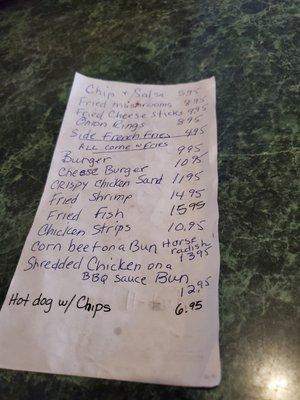 Chip + Salsa 5.95
Fried mushrooms 8.95
Fried Cheese sticks 9.95
Onion Rings 8.95
Side French Fries 4.95
ALL Come w Fries
Burger 9.95
Cheese Burger 10.95
CRISPY Chicken Sand 11.95
Fried Shrimp 14.95
Fried fish 15.99
Chicken Strips 10.95
Corn beef on a Bun Horse
radish 13.95
Shredded Chicken on a
BBQ Sauce Bun
12.95
Hot dog w/ Chips 6.95